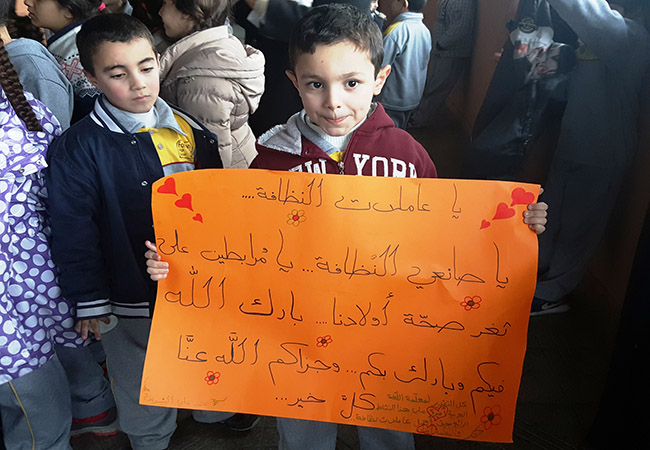 NEW YORK
يا عاملات النظافة....
يا صانعي النظافة... يا مرابطين على
ثغر صحّة أولادنا... بارك اللّه
فيكم وبارك بكم... وجزاكم اللّه عنّا
كلّ خير...